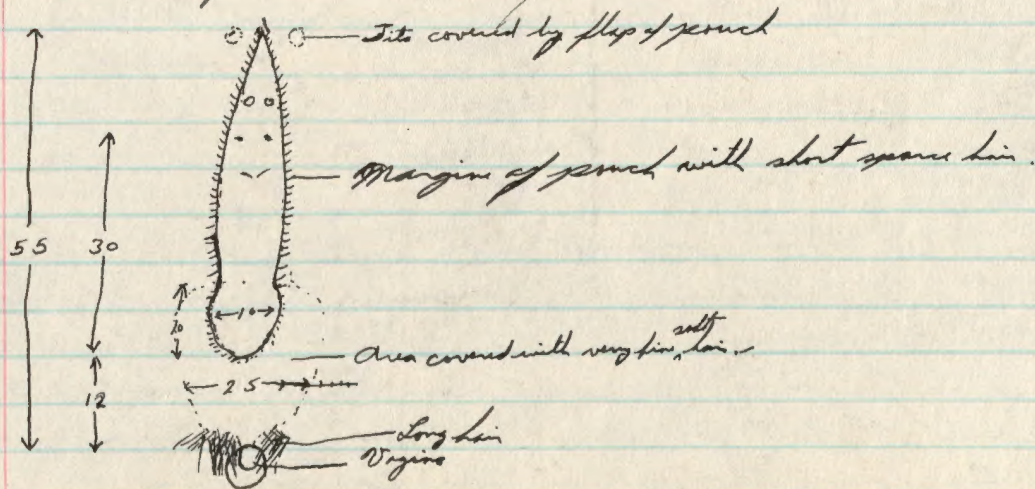 Tits covered by flap of pouch
Margins of pouch with short sparce hair.
55
30
10
20
Area covered with very fine soft hair.
25
12
Long hair
Vagina